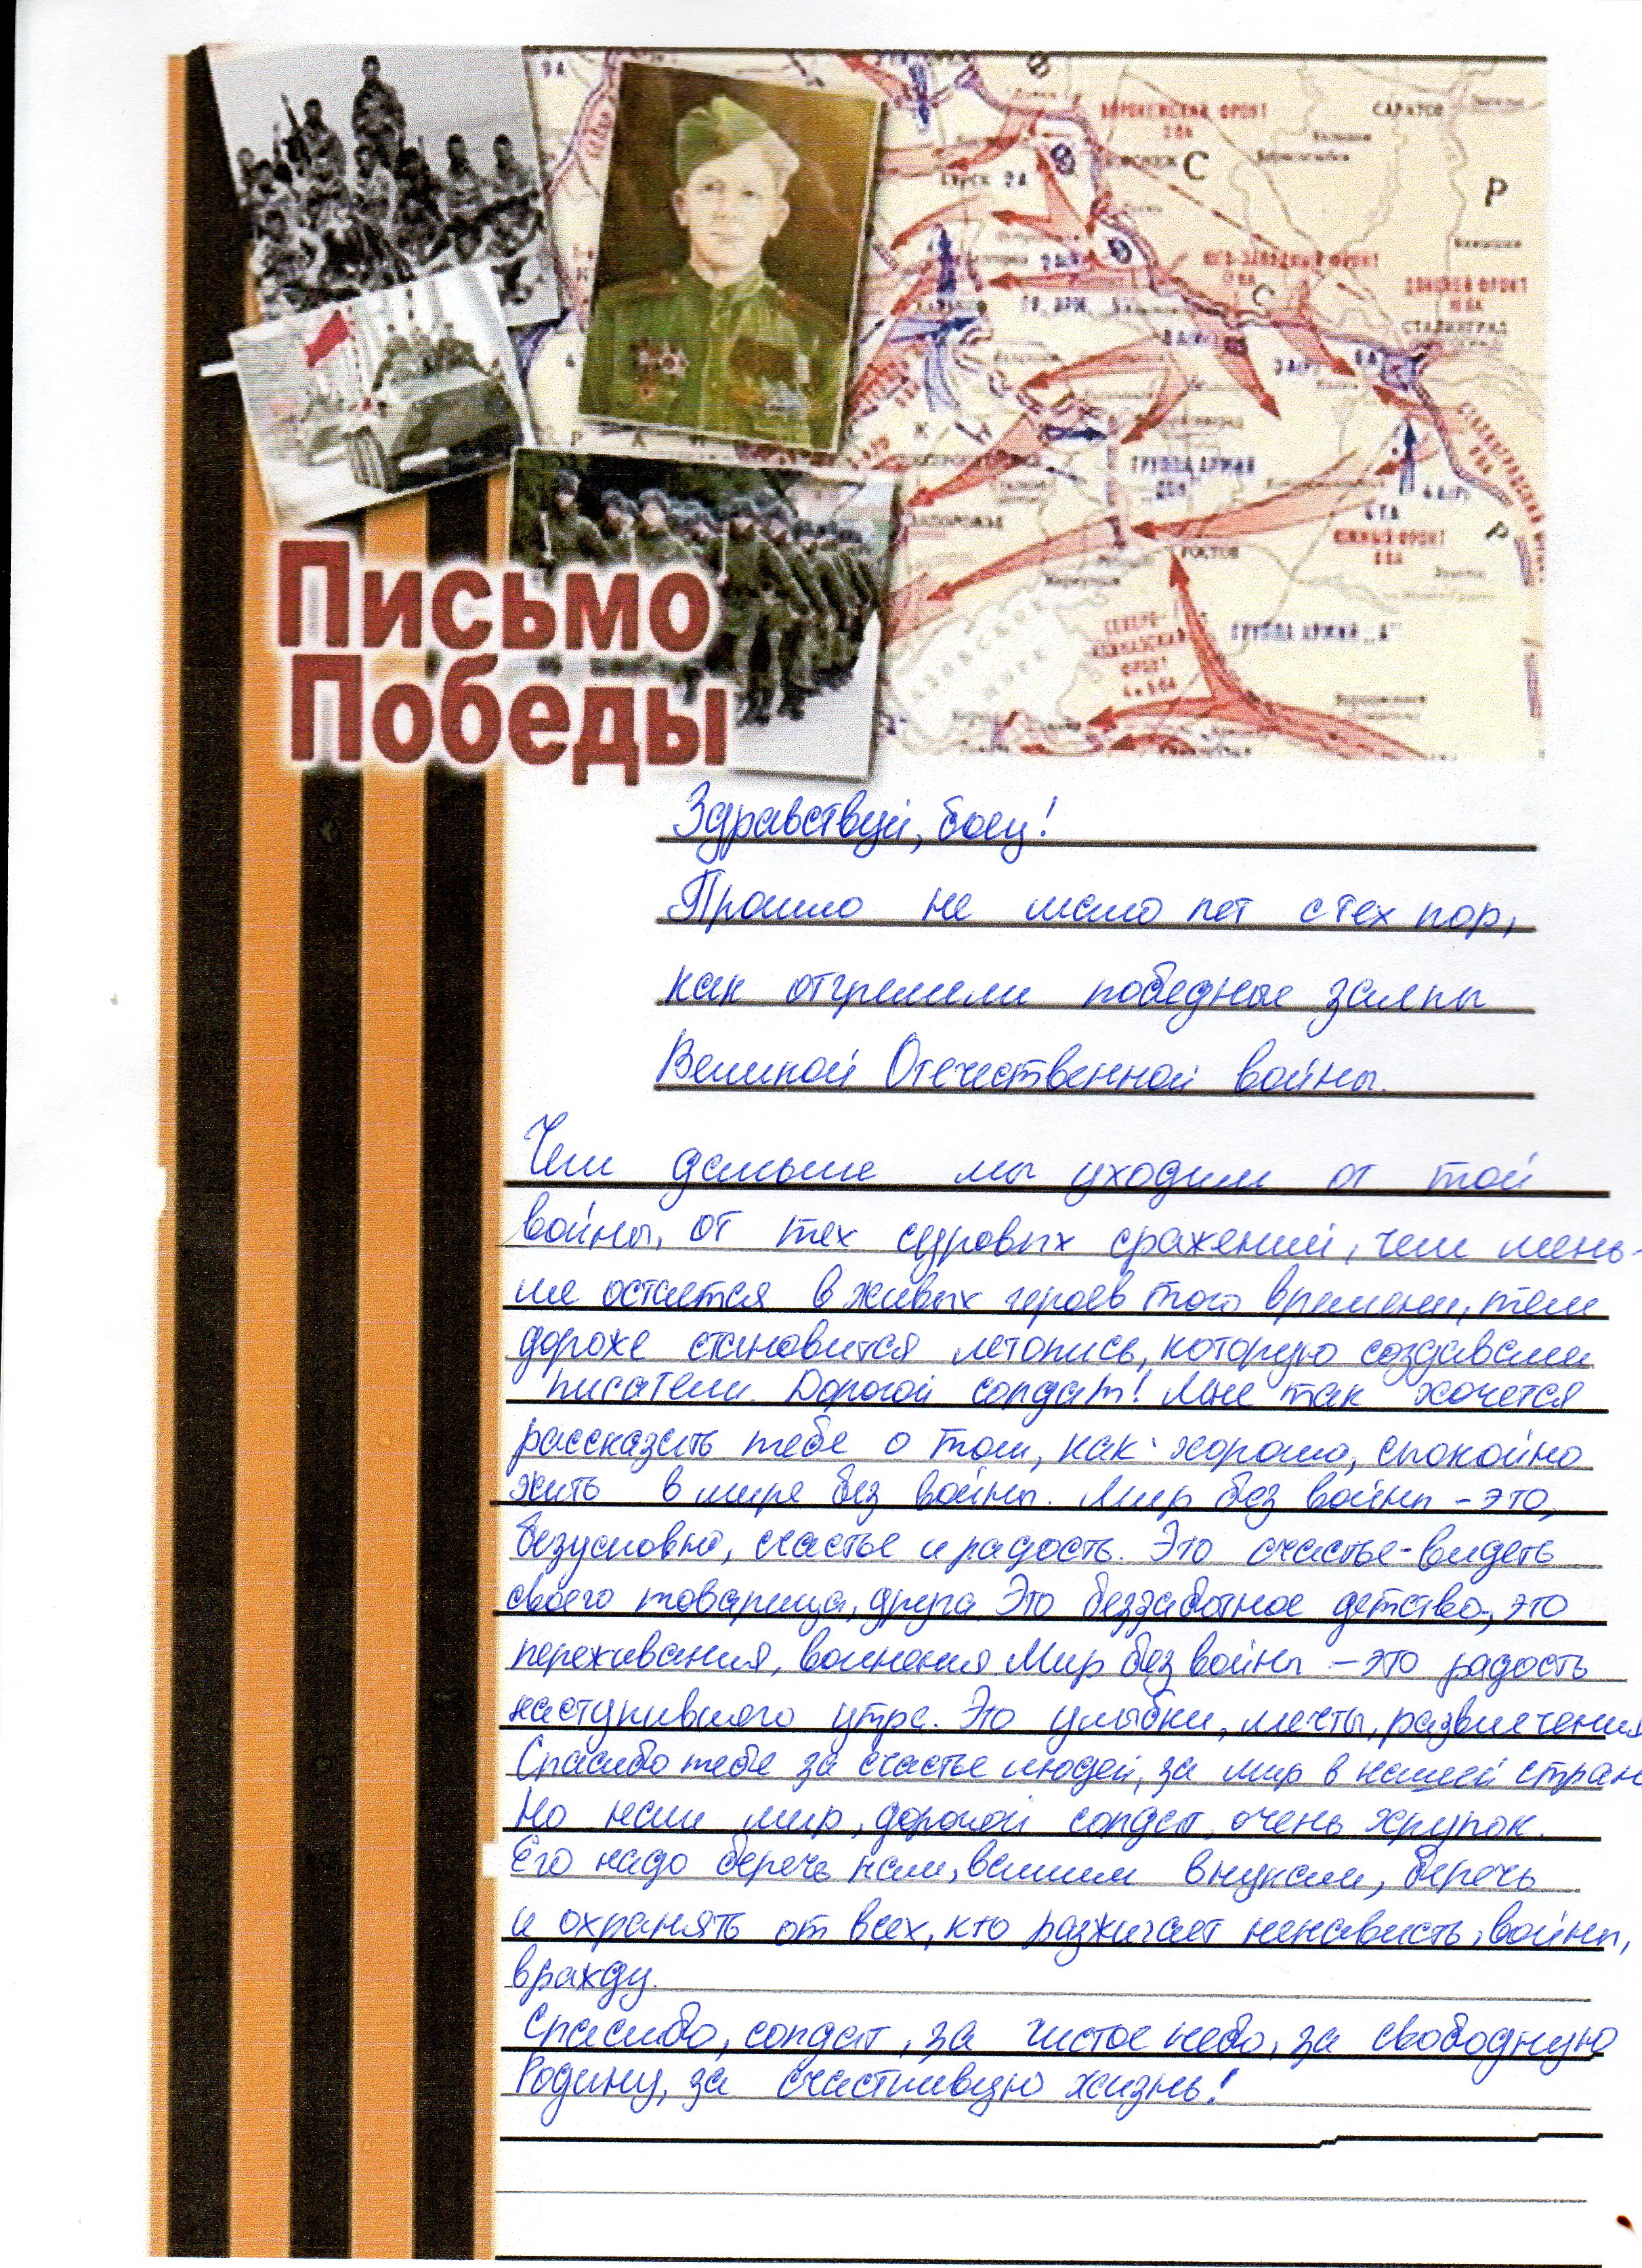 9А
ВОРОНЕЖСКИЙ ФРОНТ
САРАТОВ
С
Р
КУРСК 2А
ДОНСКОЙ ФРОНТ
СТАЛИНГРАД
С
6А
К
Р А
ГРУППА АРМИЙ
„ДОН“
ЗАПОРОЖЬЕ
ЮЖНЫЙ ФРОНТ
Р
РОСТОВ
СЕВЕРО-
КАВКАЗСКИЙ
ФРОНТ
ГРУППА АРМИЙ „А“
АЗОВСКОЕ
МОРЕ
Письмо
Победы
Здравствуй, боец!
Прошло не мало лет с тех пор,
как отгремели победные залпы
Великой Отечественной войны.
Чем дальше мы уходим от той
войны, от тех суровых сражений, чем мень-
ше остается в живых героев того времени, тем
дороже становится летопись, которую создавали
писатели. Дорогой солдат! Мне так хочется
рассказать тебе о том, как хорошо, спокойно
жить в мире без войны. Мир без войны - это,
безусловно, счастье и радость. Это счастье - видеть
своего товарища, друга Это беззаботное детство, это
переживания, волнения Мир без войны - это радость
наступившего утра. Это улыбки, мечты, развлечения
Спасибо тебе за счастье людей, за мир в нашей стран
Но наш мир, дорогой солдат, очень хрупок.
Его надо беречь нам, вашим внукам, беречь
и охранять от всех, кто разжигает ненависть, войны,
вражду.
Спасибо, солдат, за чистое небо, за свободную
Родину, за счастливую жизнь!